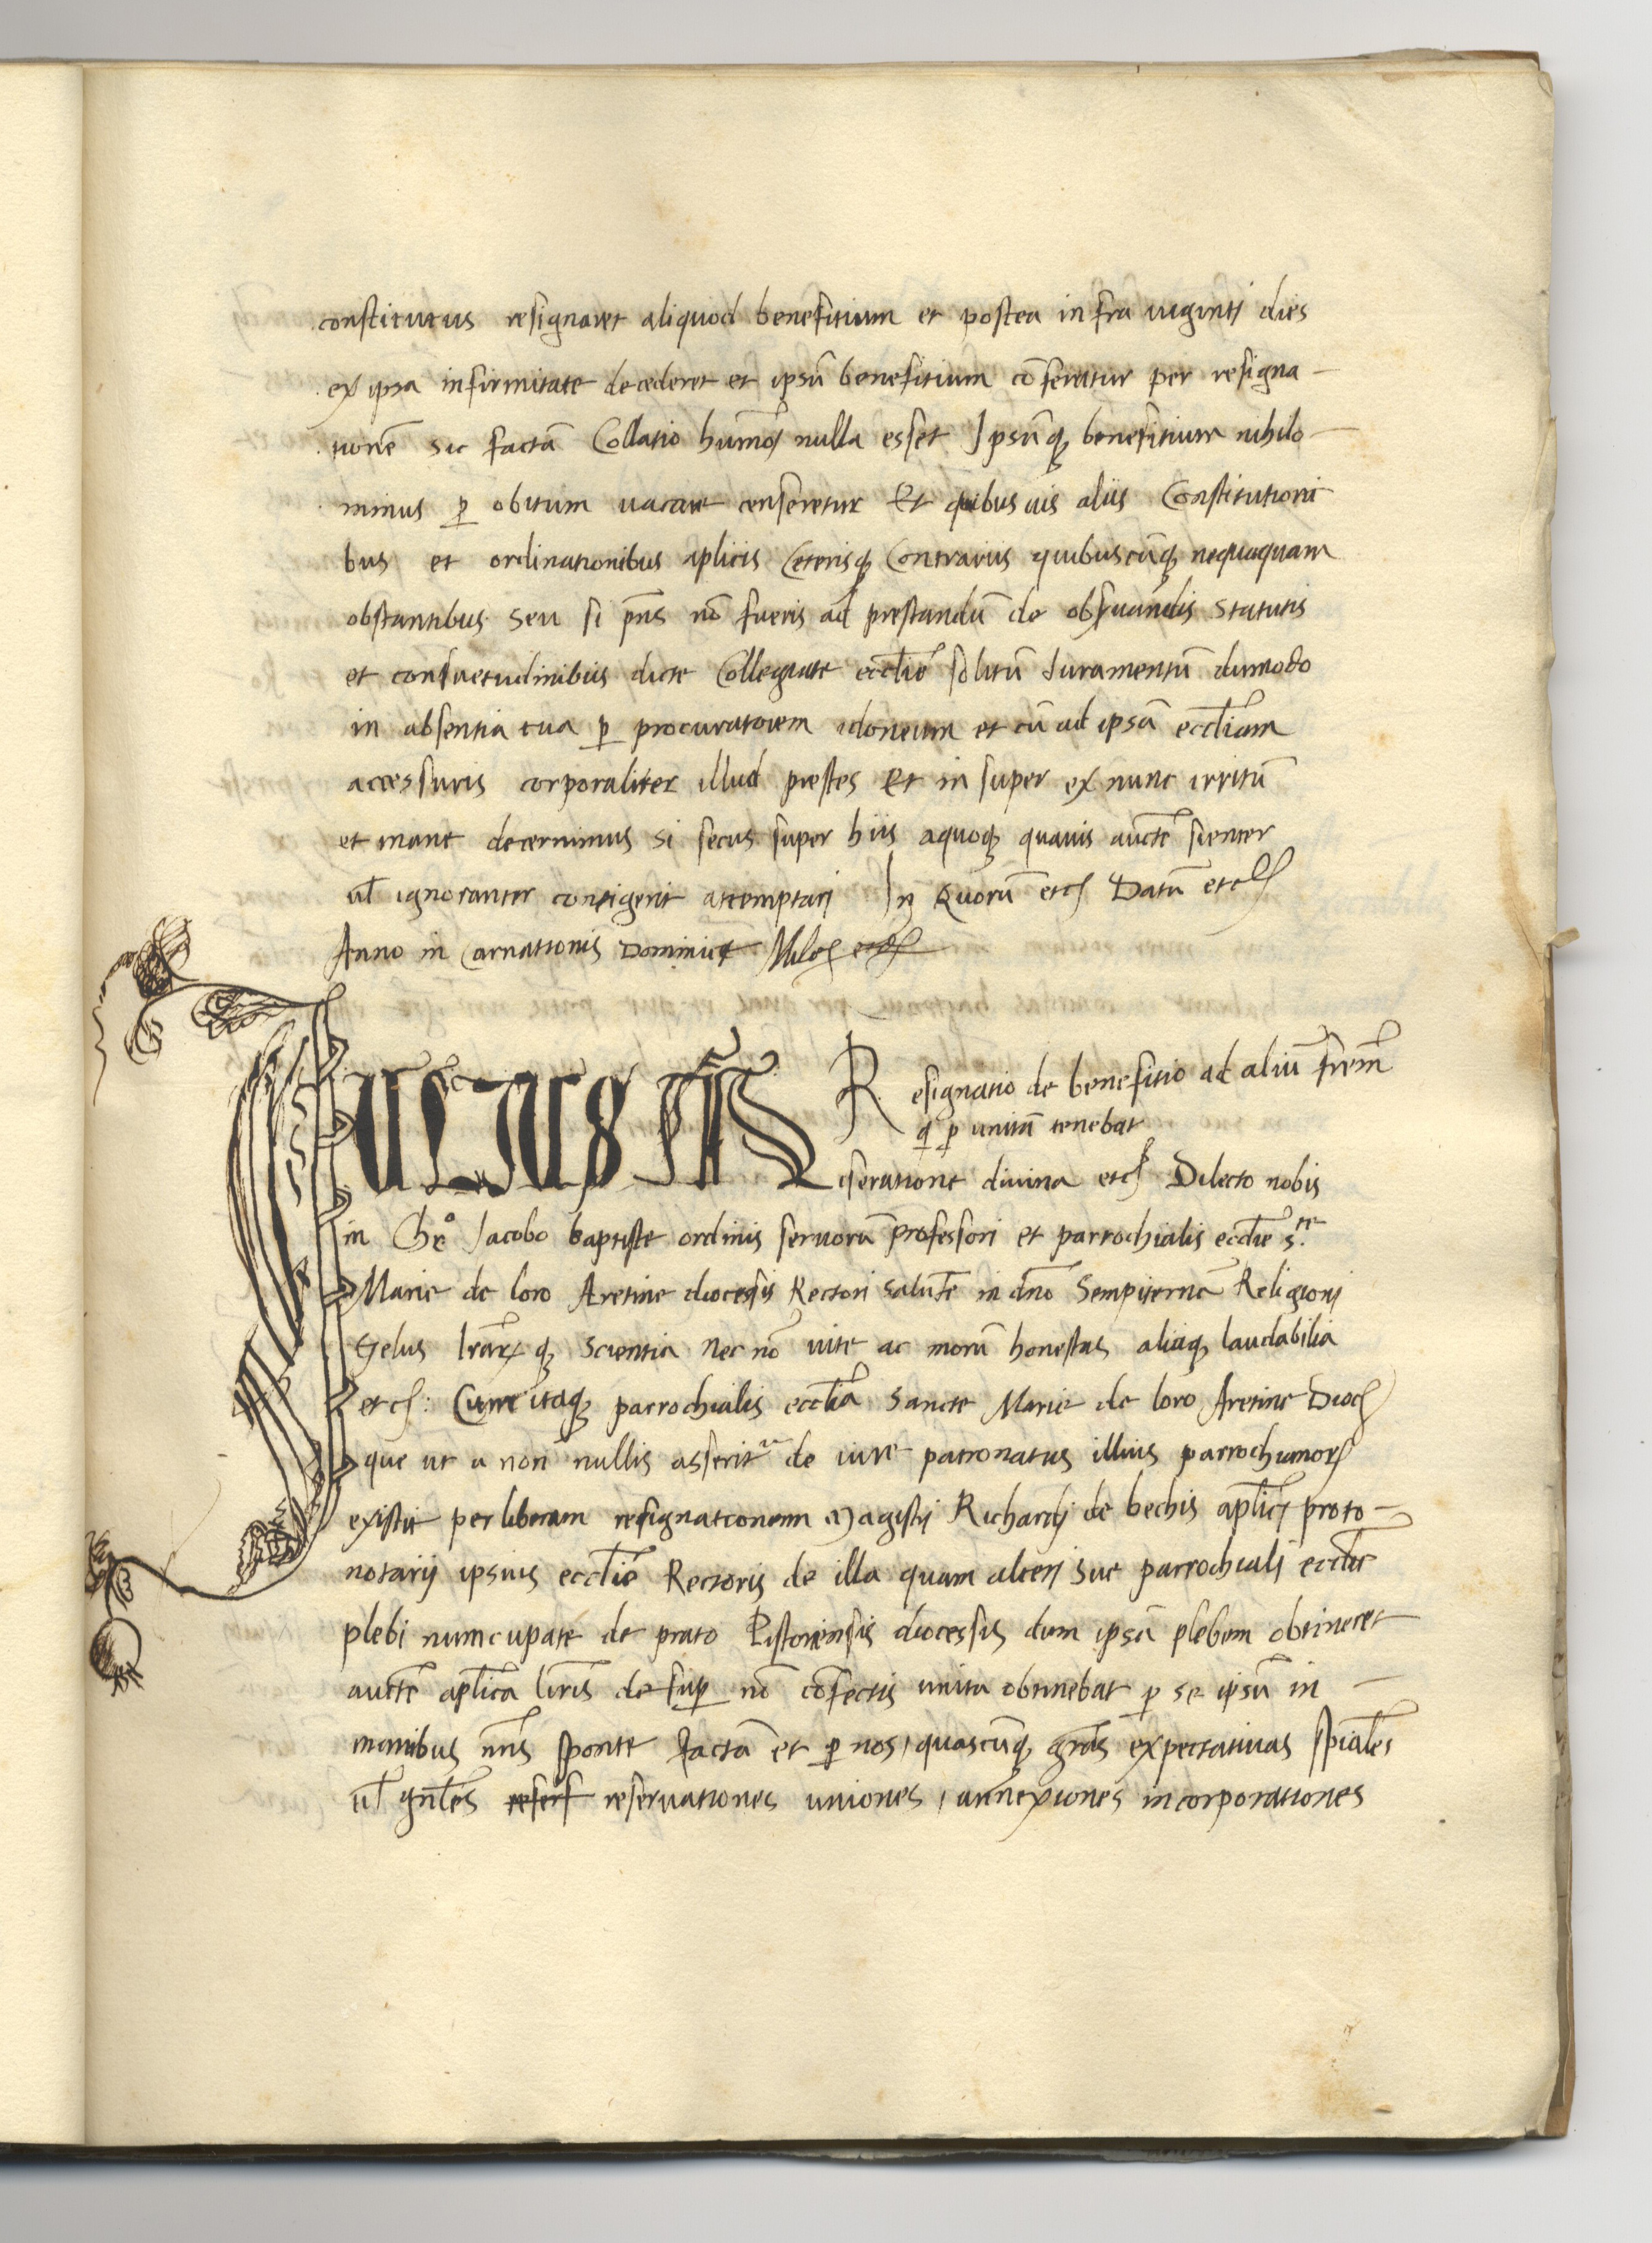 constitutus resignaret aliquod benefitium et postea infra viginti dies
ex ipsa infirmitate decederet et ipsū benefitium cōferatur per resigna-
tionē sic factā Collatio huiusmōi nulla esset Ipsūq; benefitium nihilo-
minus p̱ obitum uacare censeretur Et quibus uis aliis Constitutioni
bus et ordinationibus aplicis Ceterisq; Contrariis quibuscūq; nequaquam
obstantibus seu si pn̄s nō fueris ad prestandū de obseruandis statutis
et consuetudinibus dicte Collegiate eccl̄ie solitū Iuramentū dummodo
in absentia tua p̱ procuratorem idoneum et cū ad ipsā eccl̄iam
accessuris corporaliter illud prestes Et in super ex nunc irritū
et inane decernimus si secus super hiis aquoq; quauis auctē sienter
ul̄ ignoranter contigerit attemptari In Quorū etc̄ Datū etc̄
Anno in Carnationis Dominice etc̄
Resignatio de benefitio ad aliū
q̱ p̱ unitā tenebat
IULIUS M
iseratione diuina etc̄ Dilecto nobis
in Chr̄o Jacobo baptiste ordinis seruorū professori et parrochialis eccl̄ie s.te
Marie de loro Aretine diocesis Rectori salutē in dn̄o Sempiternā Religioni
Zelus lr̄arꝝ q; scientia nec nō uite ac morū honestas aliaq; laudabilia
etc̄: Cum itaq; parrochialis eccl̄ia Sancte Marie de loro Aretine Dioc̄
que ut a non nullis asserit̄ de iure patronatus illius parrochianorꝝ
existit per liberam resignationem Magistri Richardj de bechis apl̄icj proto-
notarij ipsius eccl̄ie Rectoris de illa quam alteri sue parrochiali eccl̄ie
plebi nuncupate de prato Pistoriensis diocessis dum ipsā plebem obtineret
auctē apl̄ica lr̄is desup̱ nō cōfectis unita obtinebat p̱ se ipsū in -
manibus nr̄is sponte factā et p̱ nos, quascūq; gr̄as expectatiuas spial̄es
ul̄ gn̄l̄es reserf reseruationes uniones, annexiones incorporationes